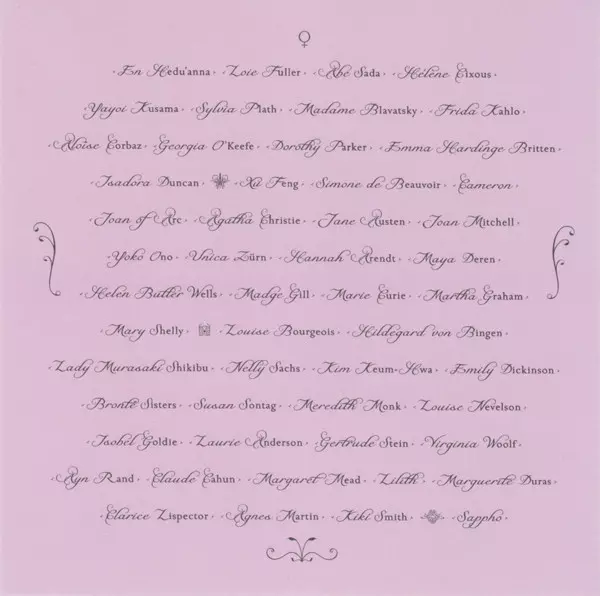 · En Hedu'anna · Loie Fuller · Abe Sada · Hélène Cixous ·
Yayoi Kusama · Sylvia Plath · Madame Blavatsky · Frida Kahlo ·
Aloise Corbaz · Georgia O'Keefe · Dorothy Parker · Emma Hardinge Britten ·
· Isadora Duncan · Xu Feng · Simone de Beauvoir · Cameron ·
· Joan of Arc · Agatha Christie · Jane Austen · Joan Mitchell ·
· Yoko Ono · Unica Zürn · Hannah Arendt · Maya Deren ·
· Helen Butler Wells · Madge Gill · Marie Curie · Martha Graham ·
· Mary Shelly · Louise Bourgeois · Hildegard von Bingen ·
· Lady Murasaki Shikibu · Nelly Sachs · Kim Keum-Hwa · Emily Dickinson ·
· Brontë Sisters · Susan Sontag · Meredith Monk · Louise Nevelson ·
· Isobel Goldie · Laurie Anderson · Gertrude Stein · Virginia Woolf ·
· Ayn Rand · Claude Cahun · Margaret Mead · Lilith · Marguerite Duras ·
· Clarice Lispector · Agnes Martin · Kiki Smith · Sappho ·